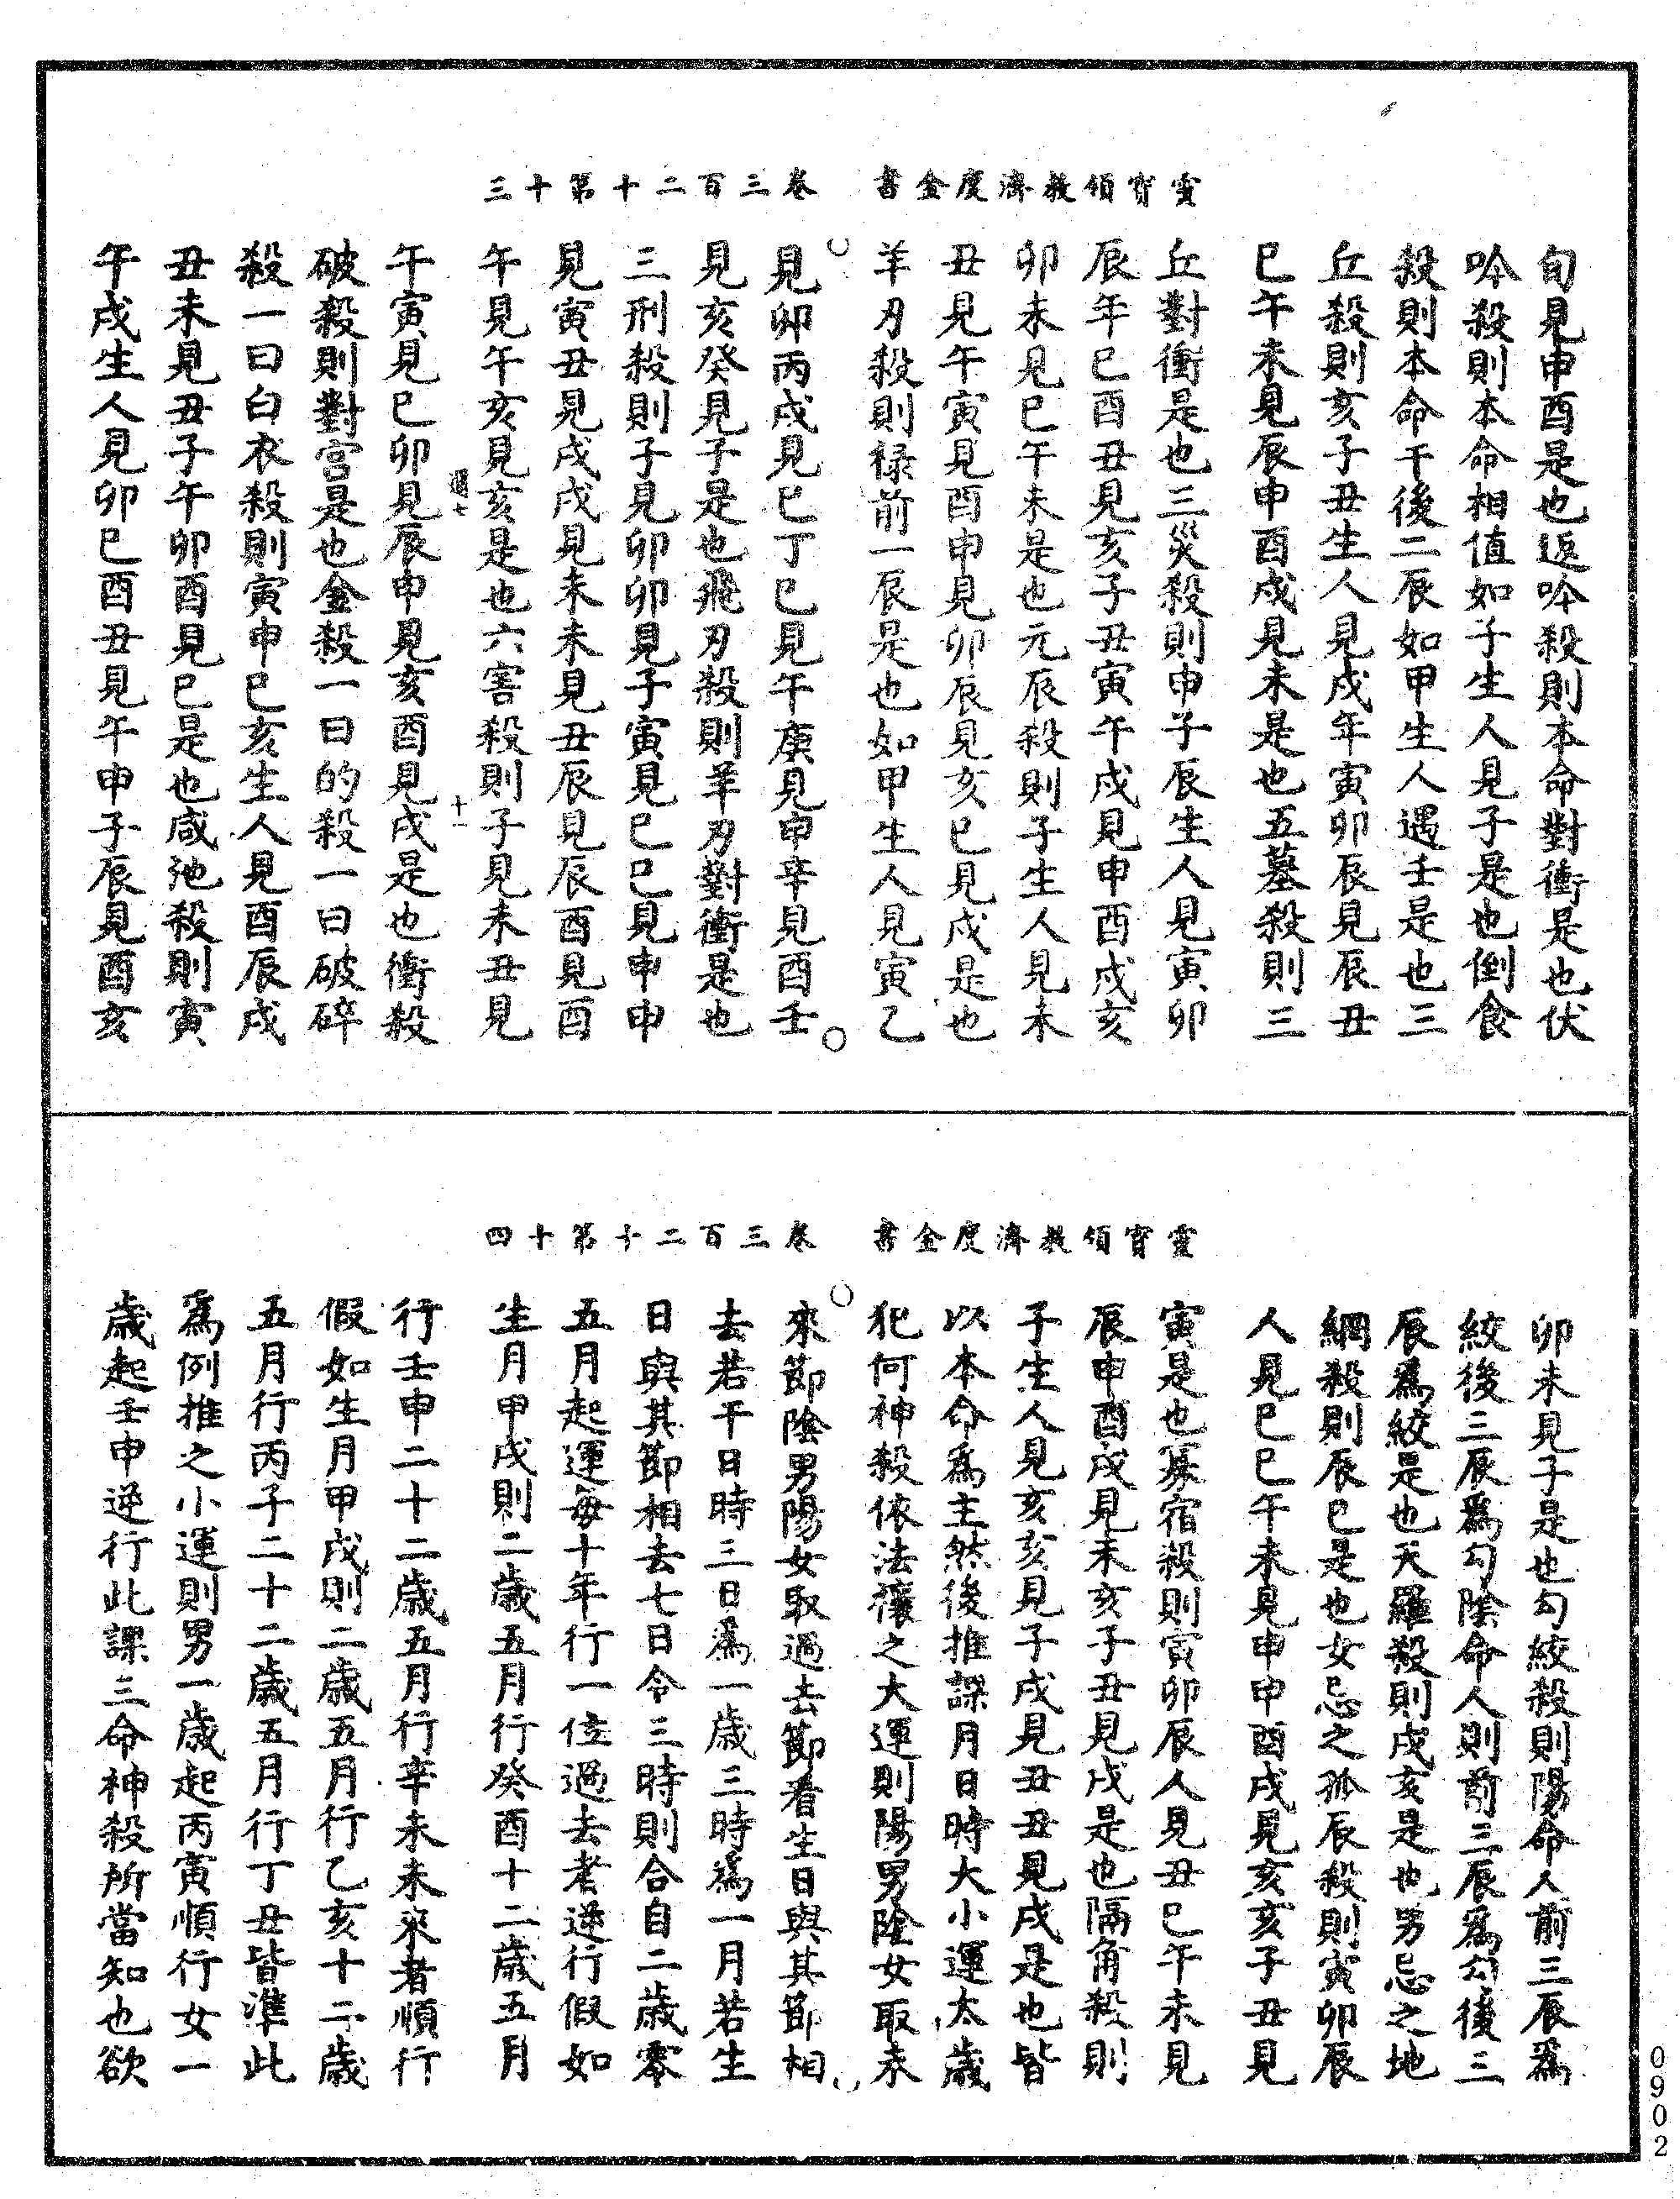 靈寶領教濟度金書　卷三百二十第十三
旬見申酉是也返吟殺則本命對衝是也伏
吟殺則本命相值如子生人見子是也倒食
殺則本命干後二辰如甲生人遇壬是也三
丘殺則亥子丑生人見戌年寅卯辰見辰丑
巳午未見辰申酉戌見未是也五墓殺則三
丘對衝是也三災殺則申子辰生人見寅卯
辰年巳酉丑見亥子丑寅午戌見申酉戌亥
卯未見巳午未是也元辰殺則子生人見未
丑見午寅見酉申見卯辰見亥巳見戌是也
羊刃殺則祿前一辰是也如甲生人見寅乙
見卯丙戌見巳丁巳見午庚見申辛見酉壬
見亥癸見子是也飛刃殺則羊刃對衝是也
三刑殺則子見卯卯見子寅見巳巳見申申
見寅丑見戌戌見未未見丑辰見辰酉見酉
午見午亥見亥是也六害殺則子見未丑見
十一
午寅見巳卯見辰申見亥酉見戌是也衝殺
破殺則對宮是也金殺一曰的殺一曰破碎
殺一曰白衣殺則寅申巳亥生人見酉辰戌
丑未見丑子午卯酉見巳是也咸池殺則寅
午戌生人見卯巳酉丑見午申子辰見酉亥
靈寶領教濟度金書　卷三百二十第十四
卯未見子是也勾絞殺則陽命人前三辰為
絞後三辰為勾陰命人則前三辰為勾後三
辰為絞是也天羅殺則戌亥是也男忌之地
網殺則辰巳是也女忌之孤辰殺則寅卯辰
人見巳巳午未見申申酉戌見亥亥子丑見
寅是也寡宿殺則寅卯辰人見丑巳午未見
辰申酉戌見未亥子丑見戌是也隔角殺則
子生人見亥亥見子戌見丑丑見戌是也皆
以本命為主然後推課月日時大小運太歲
犯何神殺依法禳之大運則陽男陰女取未
來節陰男陽女取過去節看生日與其節相
去若干日時三日為一歲三時為一月若生
日與其節相去七日令三時則合自二歲零
五月起運每十年行一位過去者逆行假如
生月甲戌則二歲五月行癸酉十二歲五月
行壬申二十二歲五月行辛未未來者順行
假如生月甲戌則二歲五月行乙亥十二歲
五月行丙子二十二歲五月行丁丑皆準此
為例推之小運則男一歲起丙寅順行女一
歲起壬申逆行此課三命神殺所當知也欲
0902